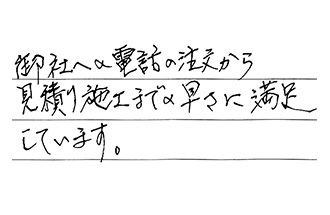 御社への電話の注文から
見積り施工までの早さに満足
しています。